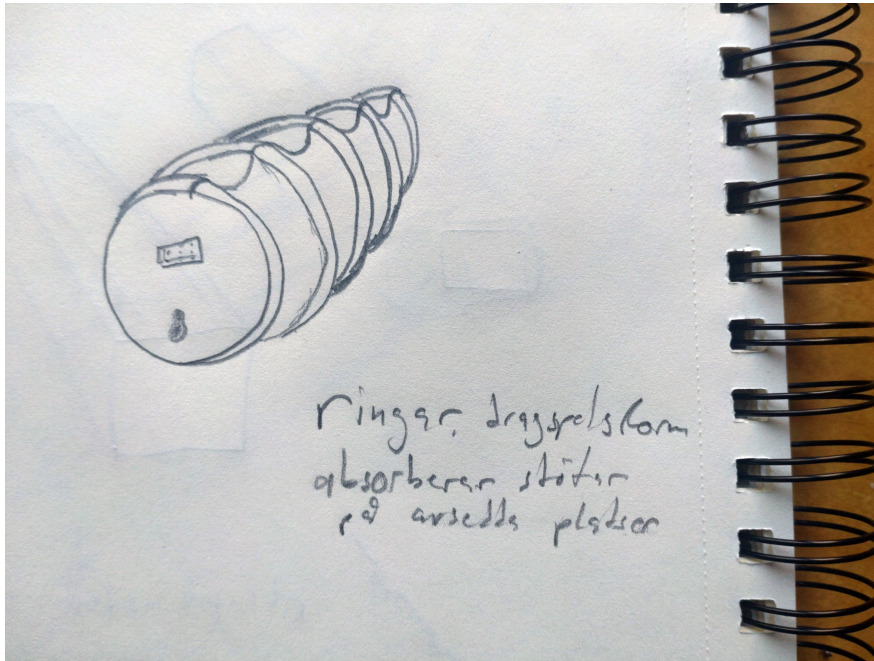 ringar, dragspelsform
absorberar stötar
på avsedda platser